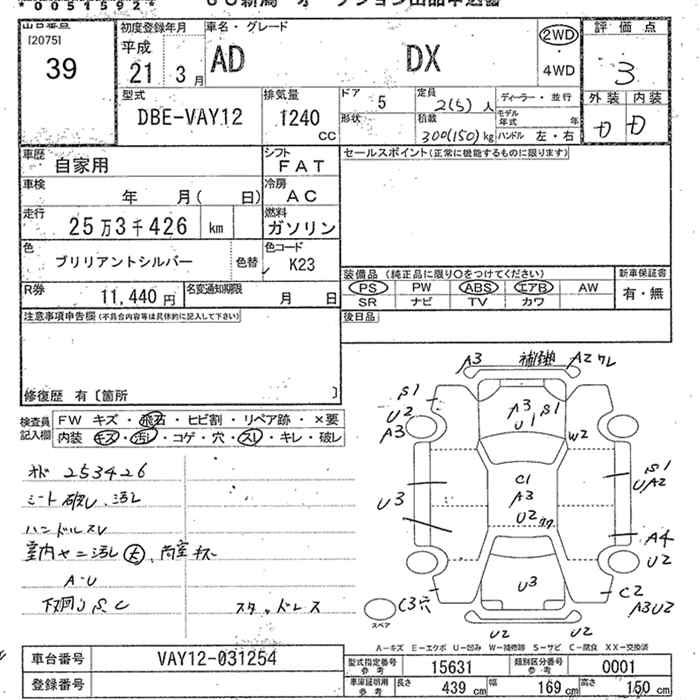 *00515924*
[2075]
39
初度登録年月
平成
21年 3月
車名・グレード
AD DX
2WD
4WD
評価点
3
外装 内装
D D
型式
DBE-VAY12
排気量
1240 cc
ドア
5
形状
定員
2(5)人
積載
300(150)kg
ディーラー・並行
モデル年式 年
ハンドル 左・右
車歴
自家用
シフト
FAT
セールスポイント(正常に機能するものに限ります)
車検
年 月( 日)
冷房
AC
走行
25万3千426 km
燃料
ガソリン
色
ブリリアントシルバー
色替
色コード
K23
R券
11,440円
名変通知期限
月 日
装備品(純正品に限り○をつけてください)
PS PW ABS エアB AW
SR ナビ TV カワ
新車保証書
有・無
注意事項申告欄(不具合内容等は具体的に記入して下さい)
後日品
修復歴 有〔箇所 〕
検査員記入欄
FW キズ・飛石・ヒビ割・リペア跡・×要
内装 キズ・汚レ・コゲ・穴・スレ・キレ・破レ
オド 253426
シート破レ、汚レ
ハンドルスレ
室内ヤニ汚レ大、
A・U
下回りS、C
スタッドレス
A3 A2 ワレ
S1
U2
A3
A3 S1
U1
W2
S1
UA2
U3
C1
A3
U2
A4
U2
U3
C2
A3U2
C3穴
スペア
U2 U2
A-キズ E-エクボ U-凹み W-補修跡 S-サビ C-腐食 XX-交換済
車台番号
VAY12-031254
登録番号
型式指定番号 参考
15631
類別区分番号 参考
0001
車庫証明用 参考
長さ 439cm 幅 169cm 高さ 150cm